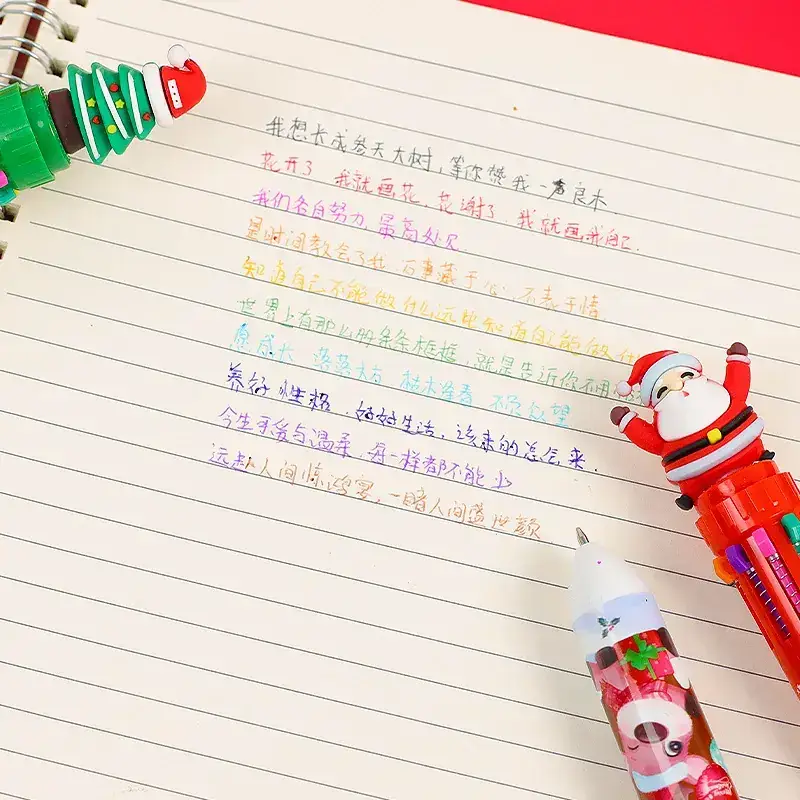 我想长成参天大树，等你赞我一声良木.
花开了 我就画花，花谢了 我就画我自己.
我们各自努力 最高处见
是时间教会了我 百事藏于心，不表于情.
知道自己不能做什么远比知道自己能做什
世界上有那么多条条框框，就是告诉你不用
愿成长 落落大方 枯木逢春 不负众望
养好性格，好好生活，该来的总会来.
今生可爱与温柔，每一样都不能少
远赴人间惊鸿宴，一睹人间盛世颜